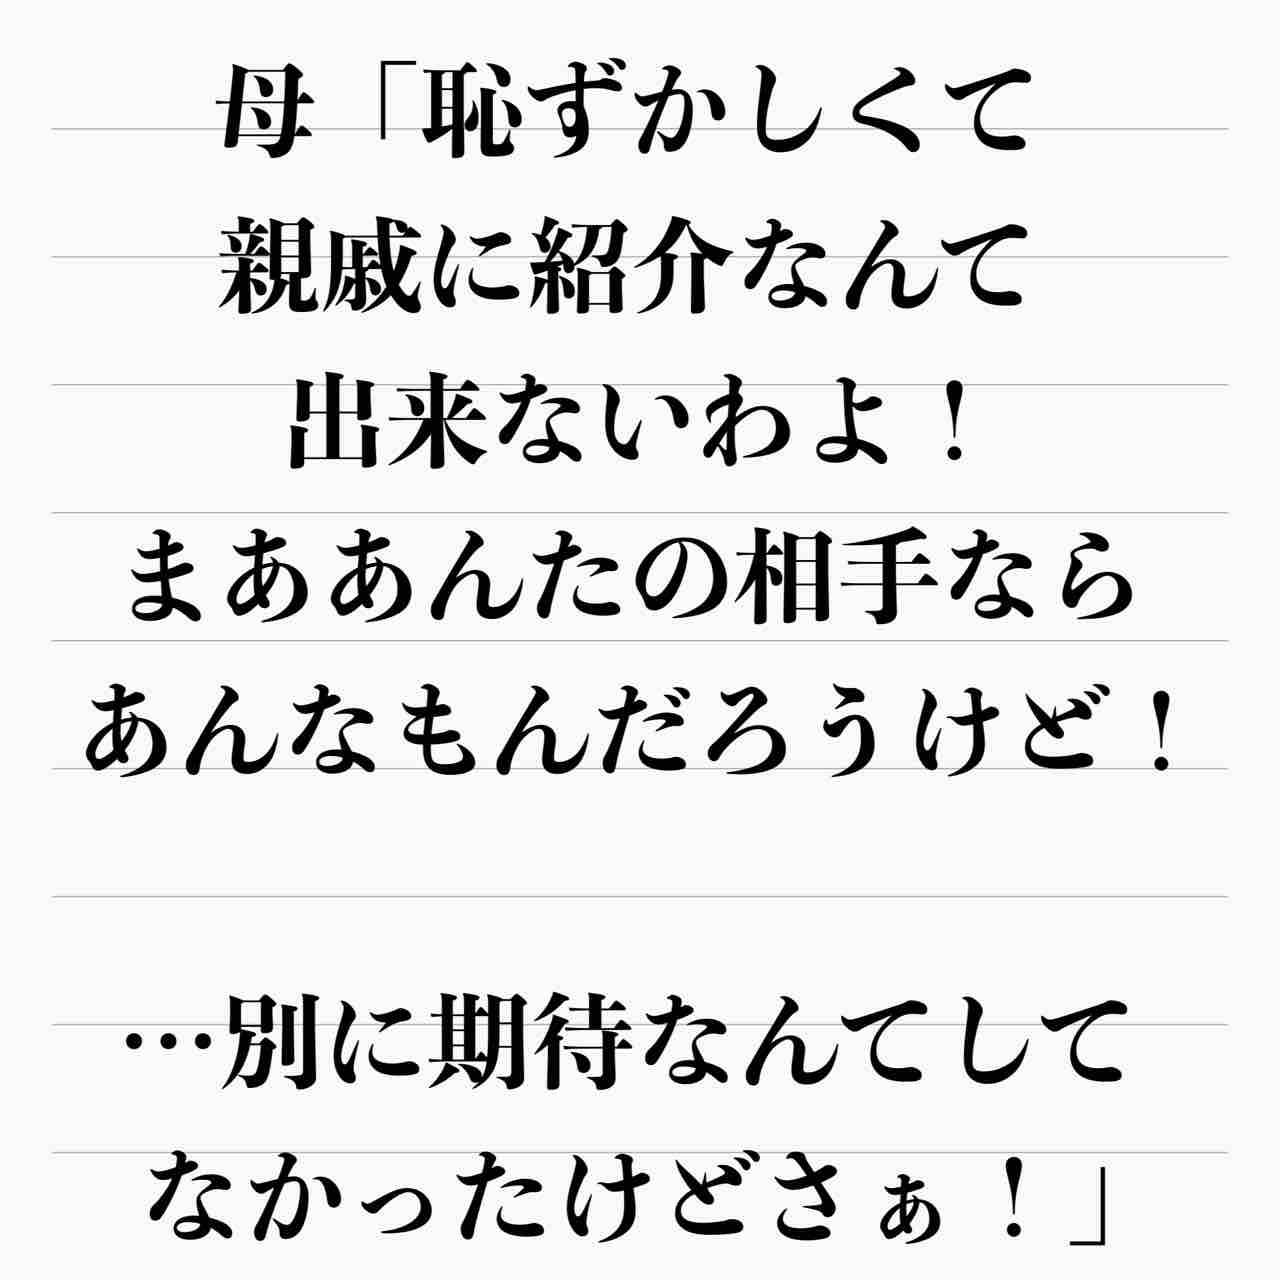 母「恥ずかしくて
親戚に紹介なんて
出来ないわよ！
まああんたの相手なら
あんなもんだろうけど！
…別に期待なんてして
なかったけどさぁ！」